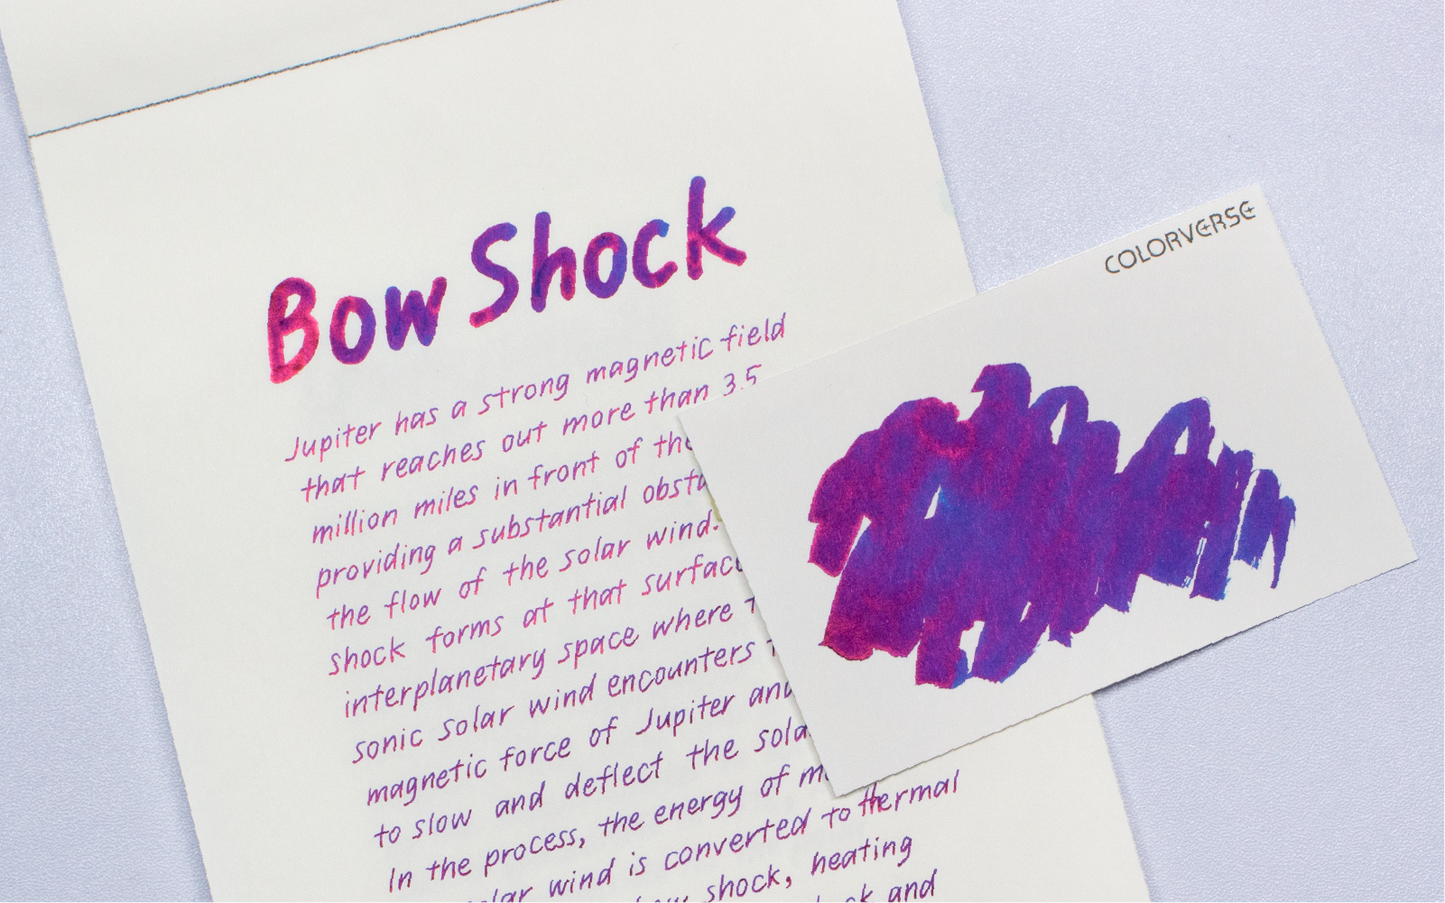 Bow Shock
Jupiter has a strong magnetic field
that reaches out more than 3.5
million miles in front of the
providing a substantial
the flow of the solar wind.
shock forms at that
interplanetary space where
sonic solar wind encounters
magnetic force of Jupiter
to slow and deflect the
In the process, the energy of
wind is converted to thermal
shock, heating
and
COLORVERSE